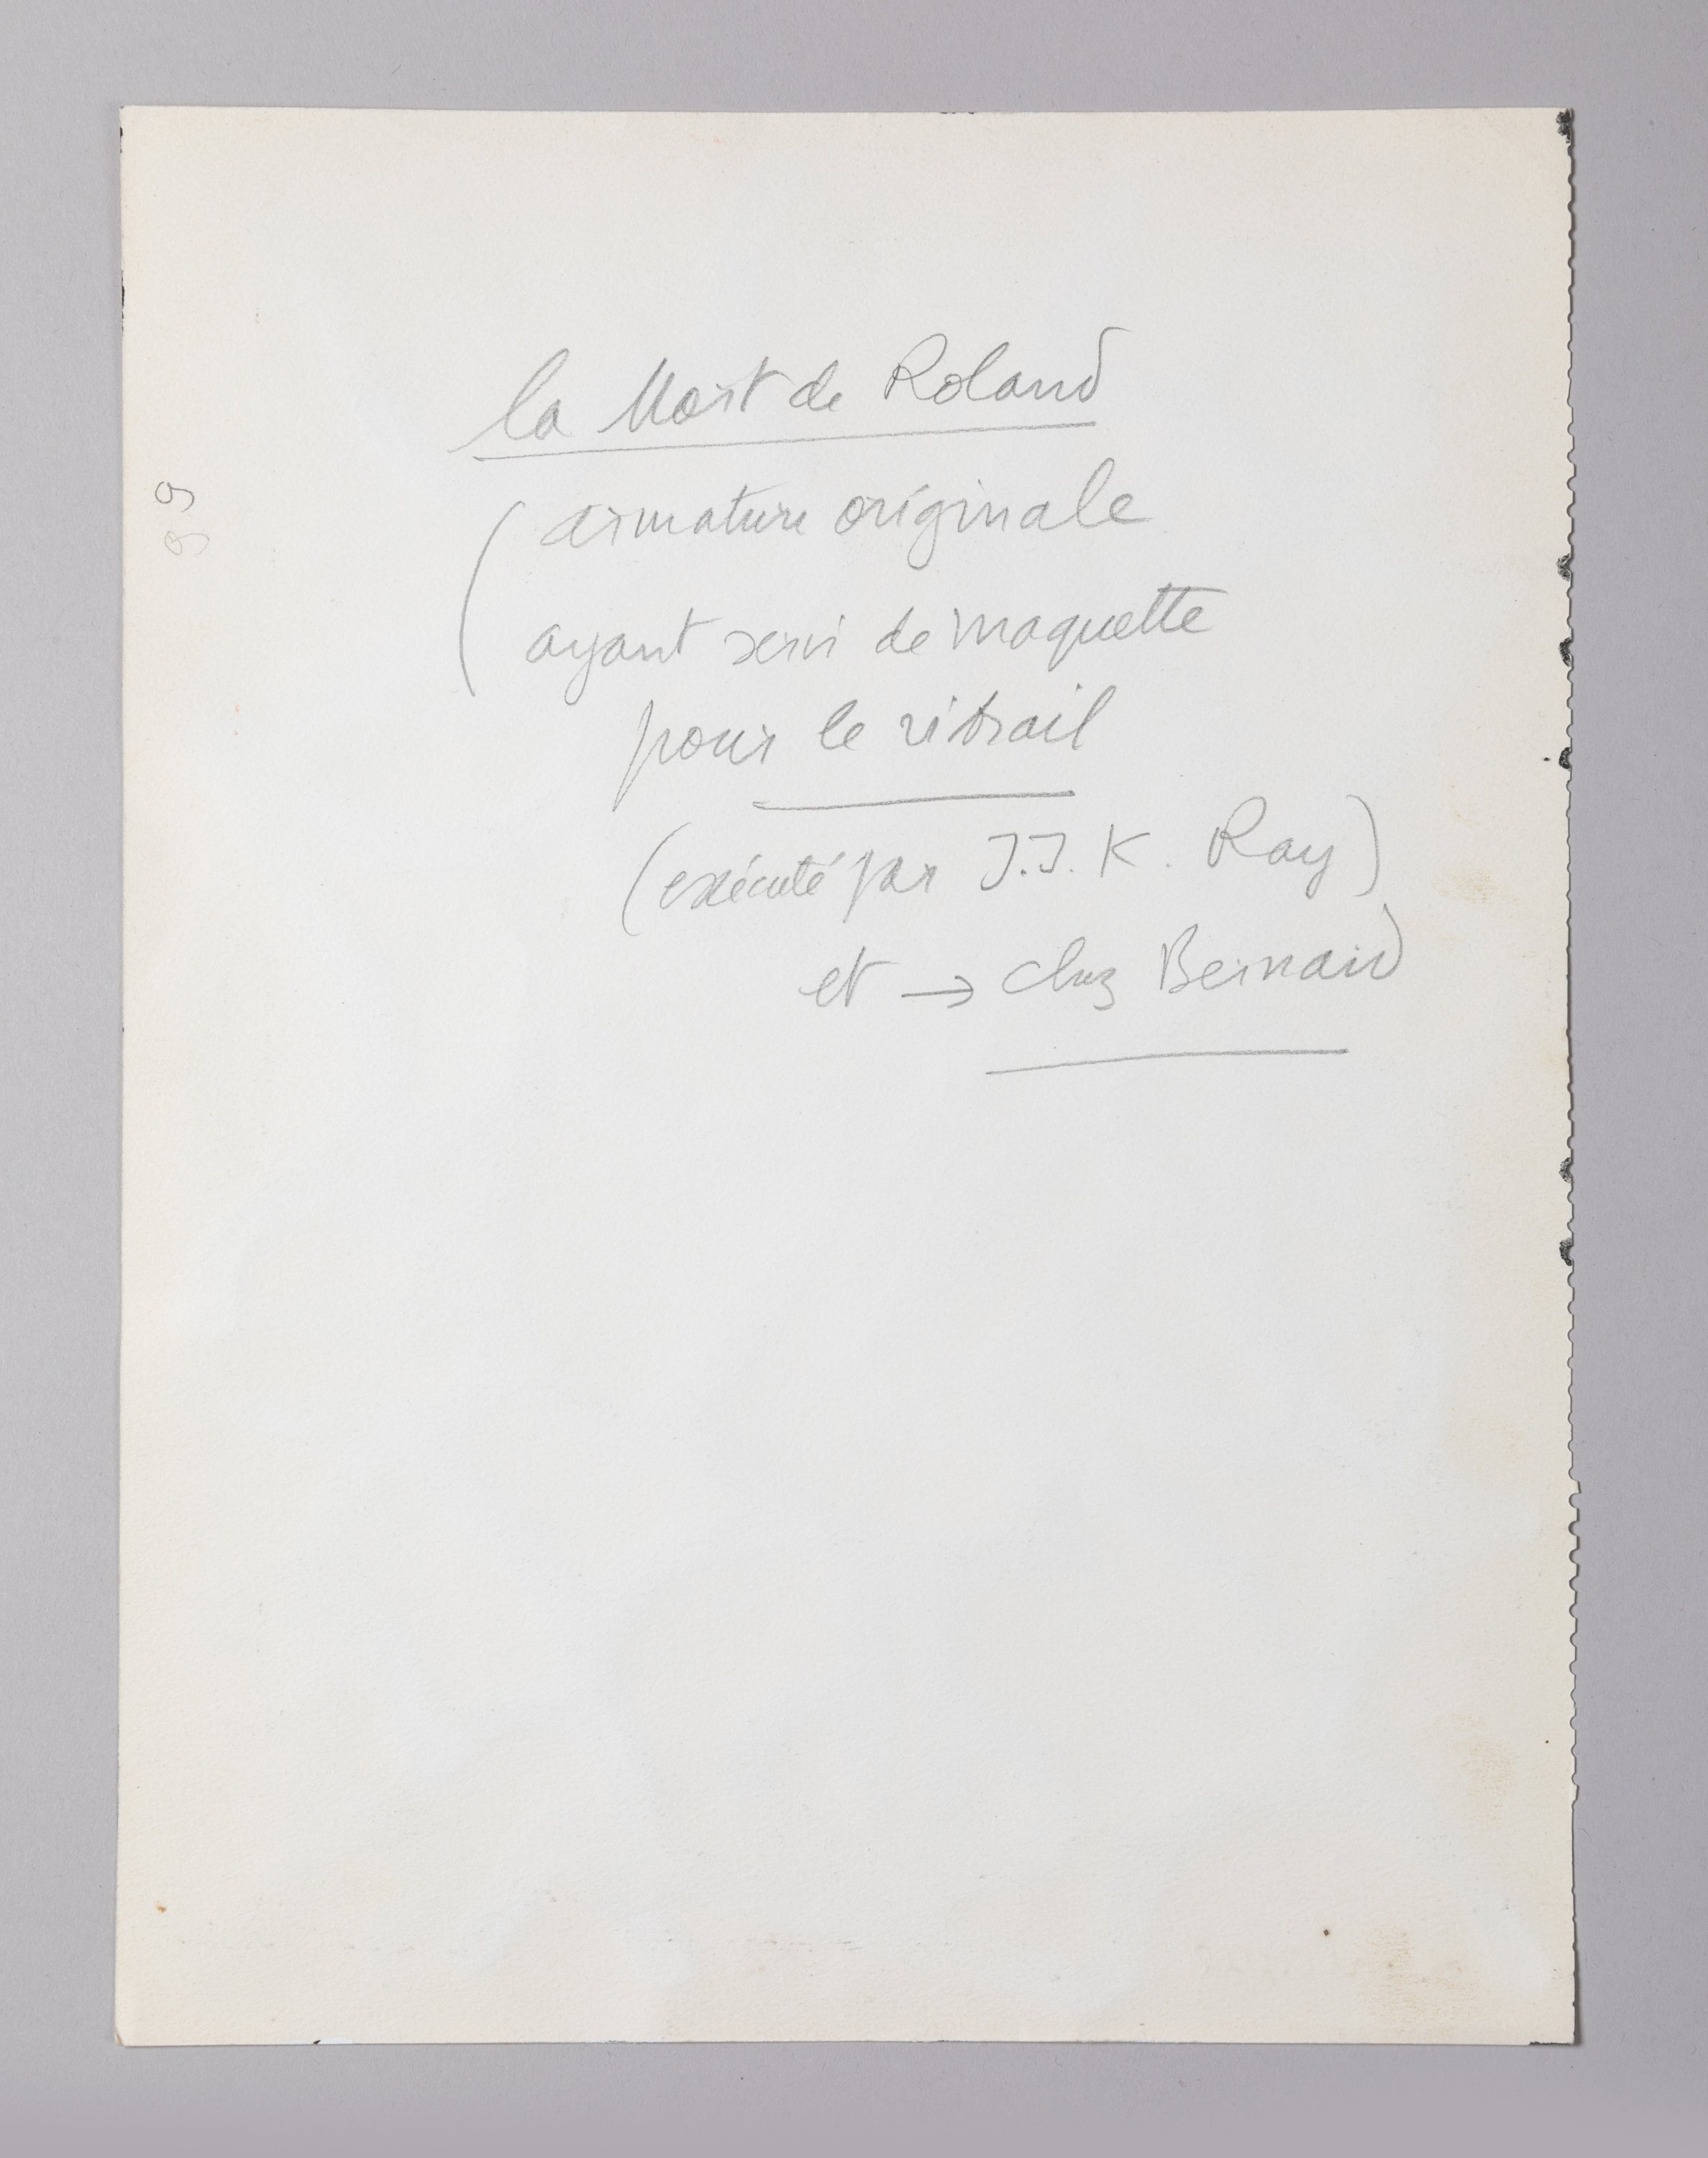 la Mort de Roland
(armature originale
ayant servi de maquette
pour le vitrail
(exécuté par J.J. K. Ray)
et → chez Bernard